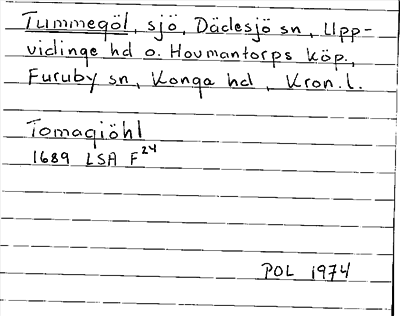 Tummegöl, sjö, Dädesjö sn, Upp-
vidinge hd o. Hovmantorps köp.,
Furuby sn, Konga hd, Kron.l.
Tomagiöhl
1689 LSA F24
POL 1974